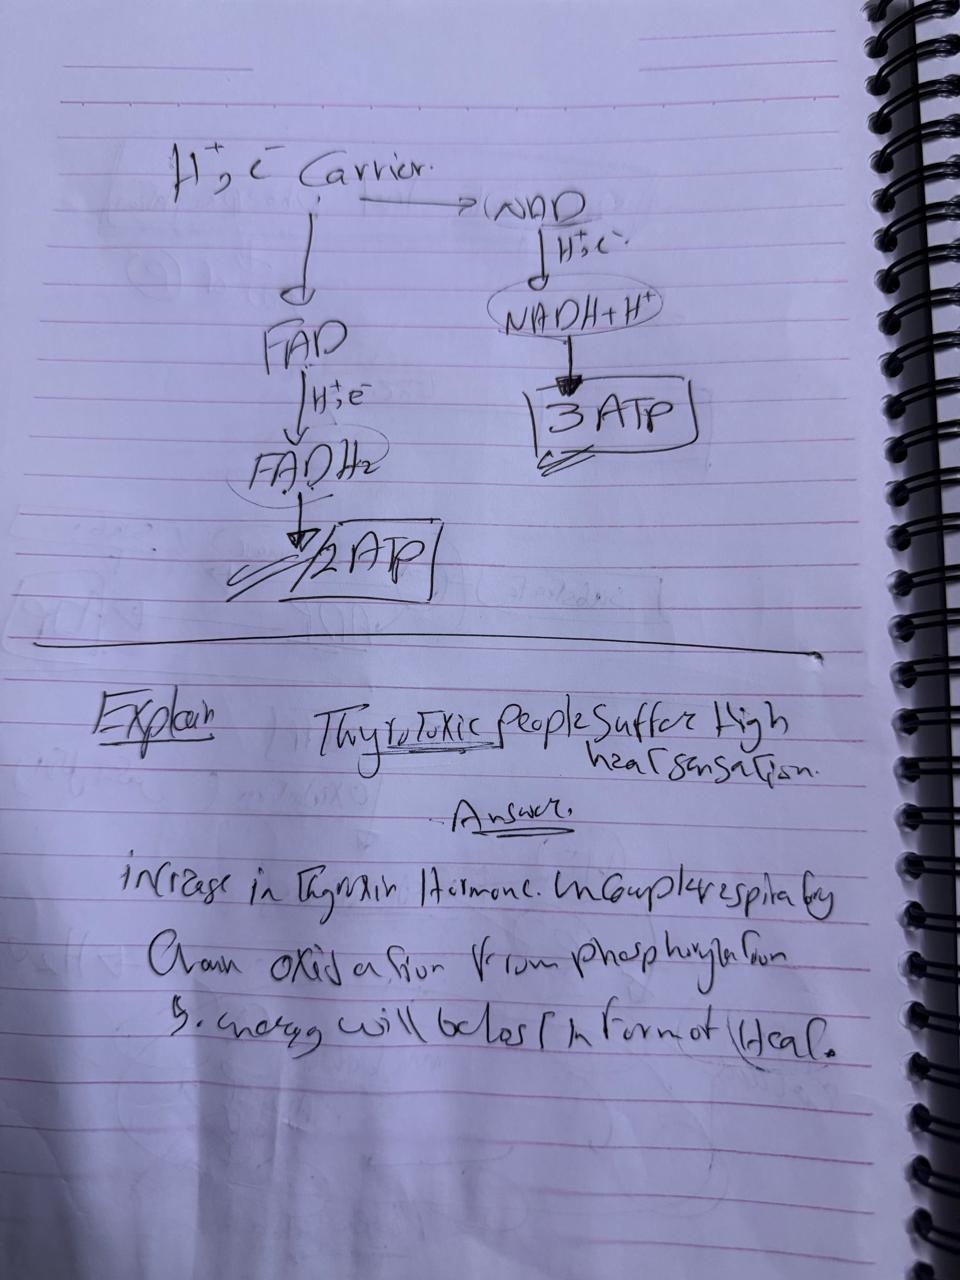 H⁺, e⁻ Carrier.
NAD
H⁺, e⁻
NADH+H⁺
3 ATP
FAD
H⁺, e⁻
FADH₂
2 ATP
Explain Thyrotoxic people suffer High
heat sensation.
Answer.
increase in Thyroxin Hormone. Uncouple respiratory
Chain oxidation from phosphorylation
So energy will be lost in form of Heat.